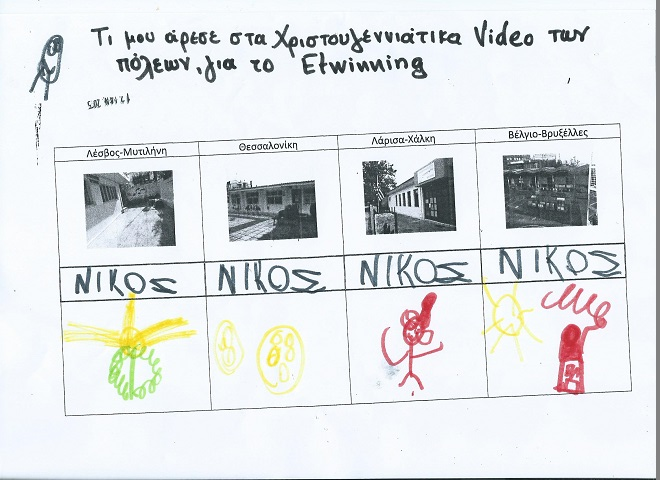 Τι μου άρεσε στα Χριστουγεννιάτικα Video των
πόλεων, για το Etwinning
Λέσβος-Μυτιλήνη Θεσσαλονίκη Λάρισα-Χάλκη Βέλγιο-Βρυξέλλες
ΝΙΚΟΣ ΝΙΚΟΣ ΝΙΚΟΣ ΝΙΚΟΣ